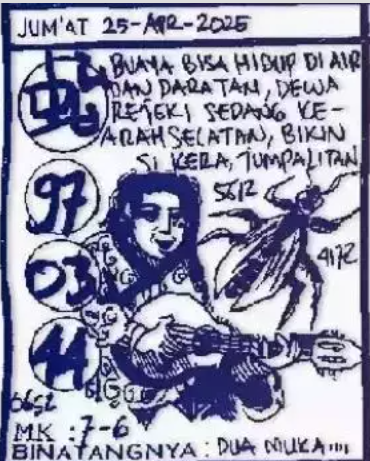 JUM'AT 25-APR-2025
BUAYA BISA HIDUP DI AIR
DAN DARATAN, DEWA
REJEKI SEDANG KE-
ARAH SELATAN, BIKIN
SI KERA, TUMPALITAN
97
5612
03
4172
44
6652
MK : 7-6
BINATANGNYA : DUA MUKA....